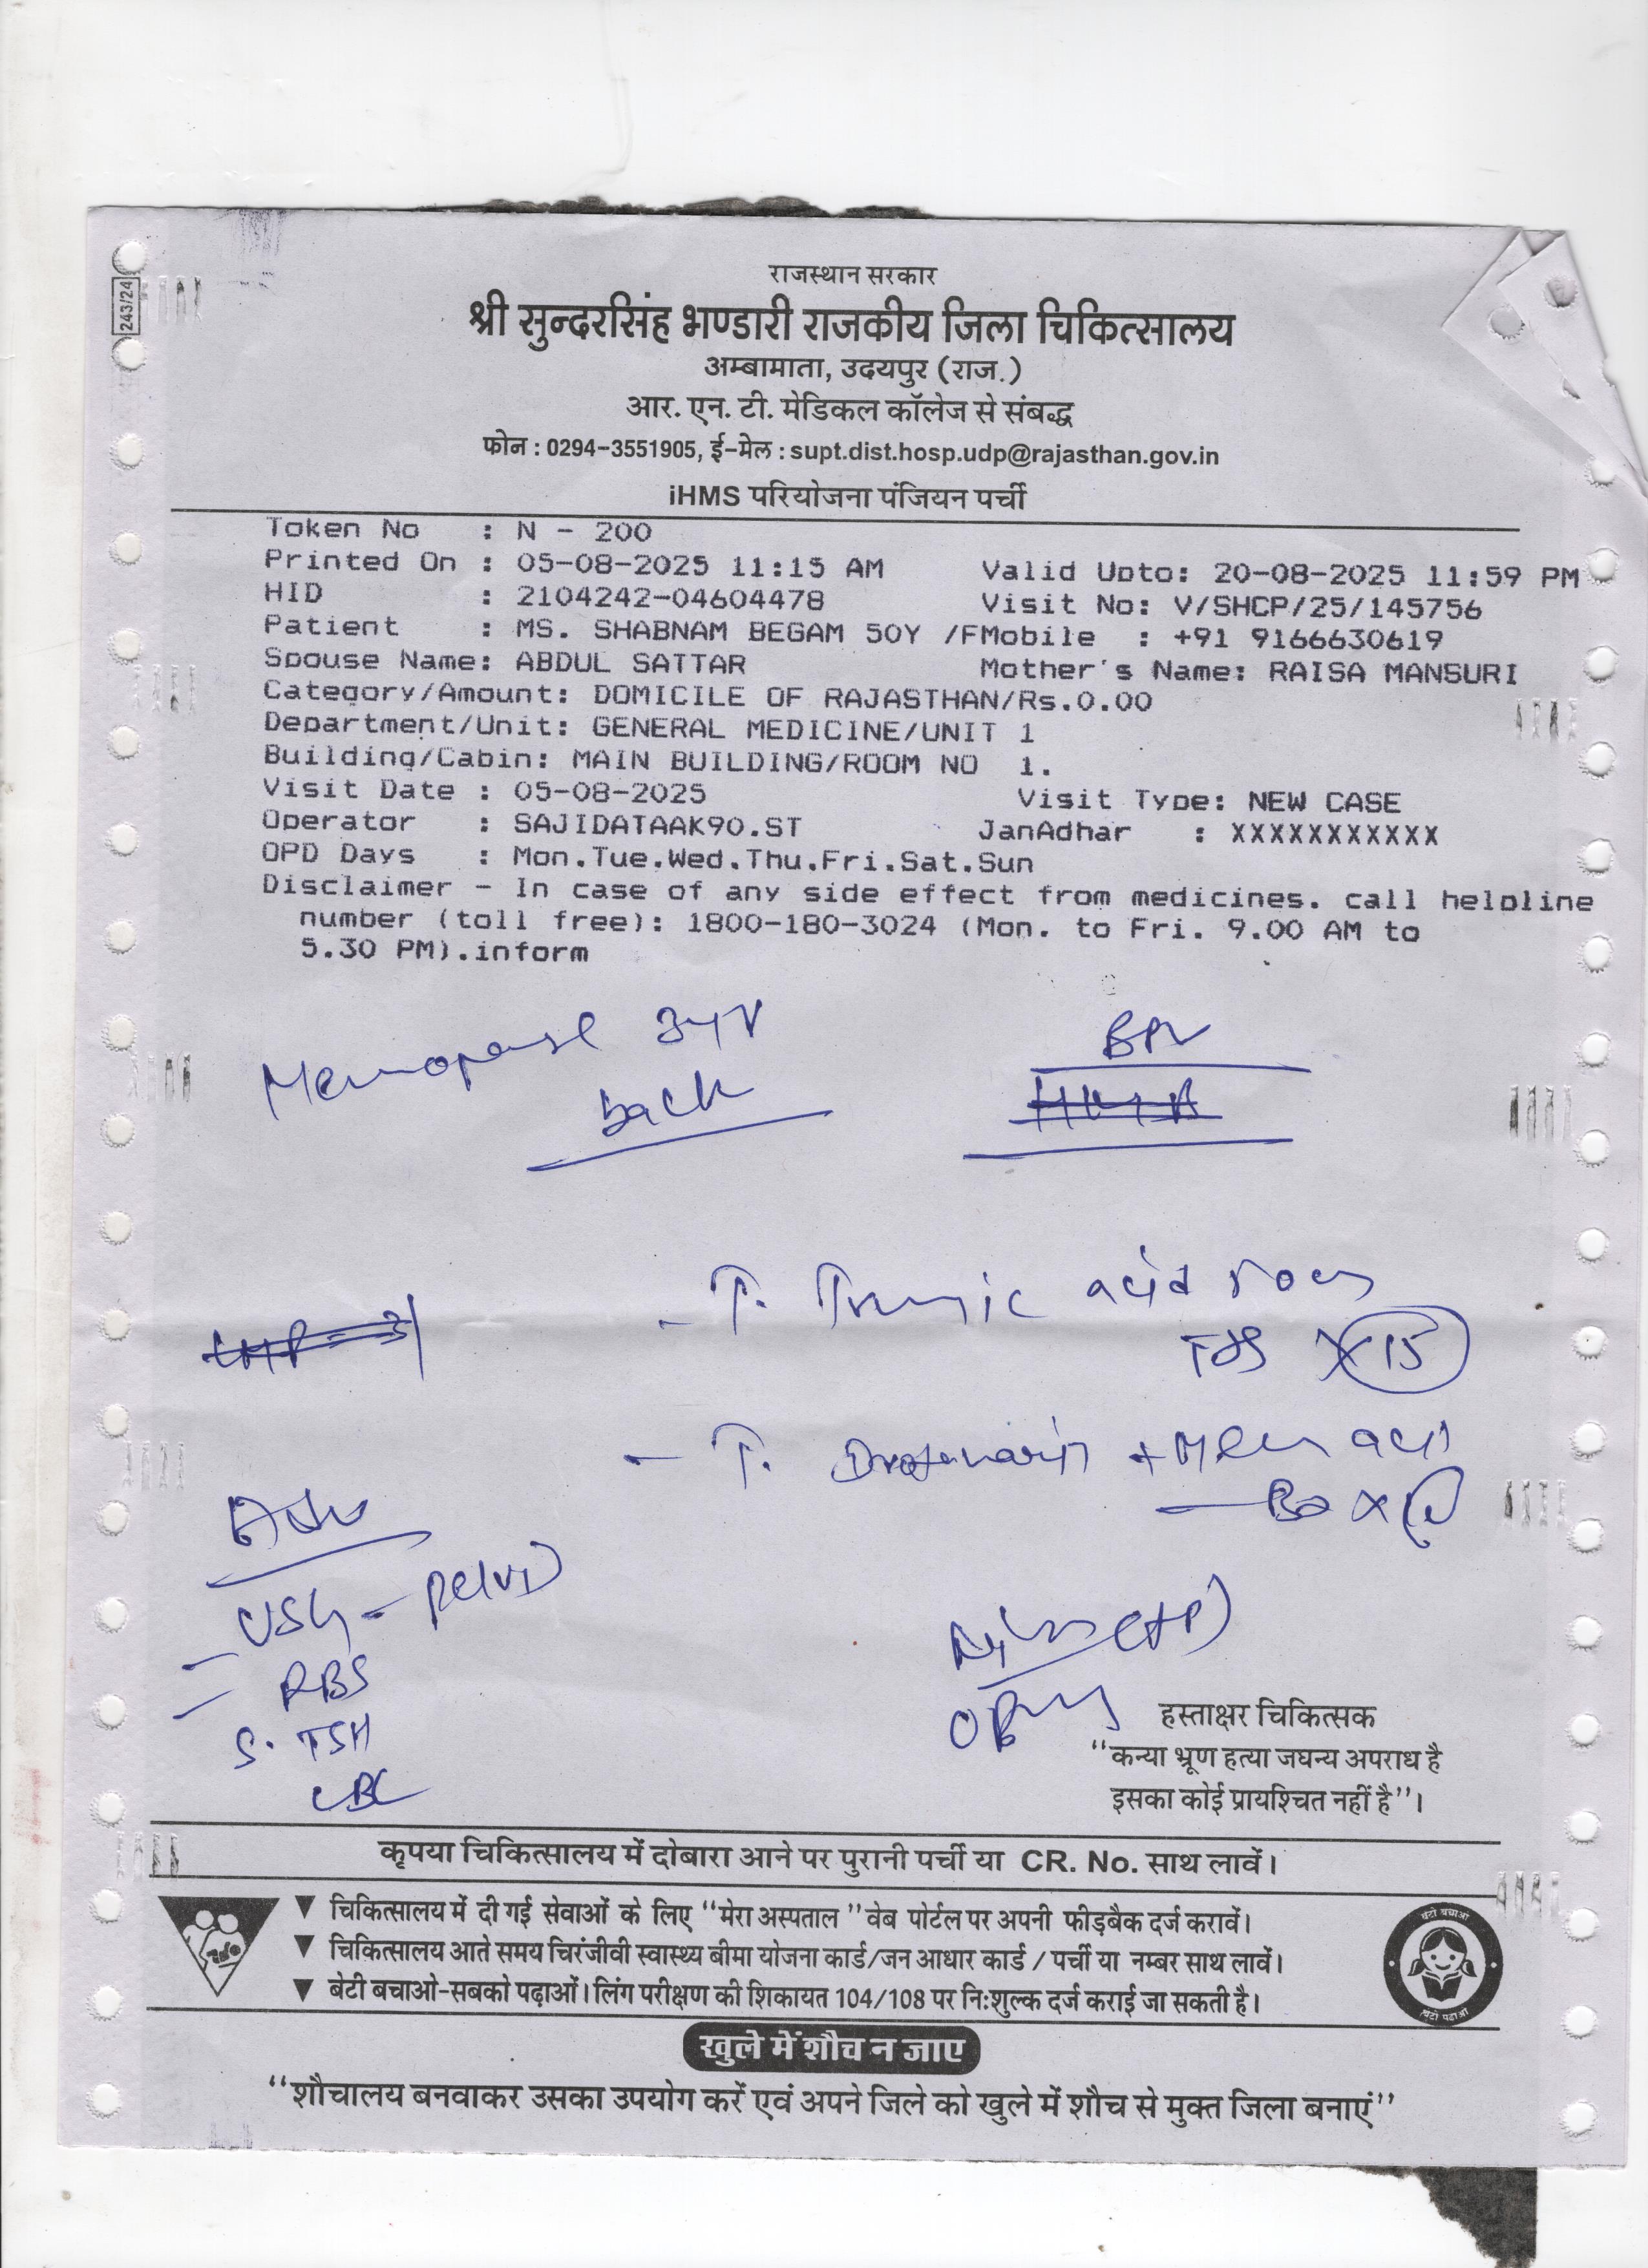 243/24
राजस्थान सरकार
श्री सुन्दरसिंह भण्डारी राजकीय जिला चिकित्सालय
अम्बामाता, उदयपुर (राज.)
आर. एन. टी. मेडिकल कॉलेज से संबद्ध
फोन : 0294-3551905, ई-मेल : supt.dist.hosp.udp@rajasthan.gov.in
iHMS परियोजना पंजियन पर्ची
Token No : N - 200
Printed On : 05-08-2025 11:15 AM Valid Upto: 20-08-2025 11:59 PM
HID : 2104242-04604478 Visit No: V/SHCP/25/145756
Patient : MS. SHABNAM BEGAM 50Y /FMobile : +91 9166630619
Spouse Name: ABDUL SATTAR Mother's Name: RAISA MANSURI
Category/Amount: DOMICILE OF RAJASTHAN/Rs.0.00
Department/Unit: GENERAL MEDICINE/UNIT 1
Building/Cabin: MAIN BUILDING/ROOM NO 1.
Visit Date : 05-08-2025 Visit Type: NEW CASE
Operator : SAJIDATAAK90.ST JanAdhar : XXXXXXXXXXX
OPD Days : Mon.Tue.Wed.Thu.Fri.Sat.Sun
Disclaimer - In case of any side effect from medicines. call helpline
number (toll free): 1800-180-3024 (Mon. to Fri. 9.00 AM to
5.30 PM).inform
Menopause 3yr
back
- T. acid
TDS X 15
- T.
USG - Pelvis
- RBS
S. TSH
CBC
हस्ताक्षर चिकित्सक
"कन्या भ्रूण हत्या जघन्य अपराध है
इसका कोई प्रायश्चित नहीं है"।
कृपया चिकित्सालय में दोबारा आने पर पुरानी पर्ची या CR. No. साथ लावें।
▼ चिकित्सालय में दी गई सेवाओं के लिए "मेरा अस्पताल" वेब पोर्टल पर अपनी फीड़बैक दर्ज करावें।
▼ चिकित्सालय आते समय चिरंजीवी स्वास्थ्य बीमा योजना कार्ड/जन आधार कार्ड / पर्ची या नम्बर साथ लावें।
▼ बेटी बचाओ-सबको पढ़ाओं। लिंग परीक्षण की शिकायत 104/108 पर निःशुल्क दर्ज कराई जा सकती है।
बेटी बचाओ
बेटी पढ़ाओ
खुले में शौच न जाए
"शौचालय बनवाकर उसका उपयोग करें एवं अपने जिले को खुले में शौच से मुक्त जिला बनाएं"